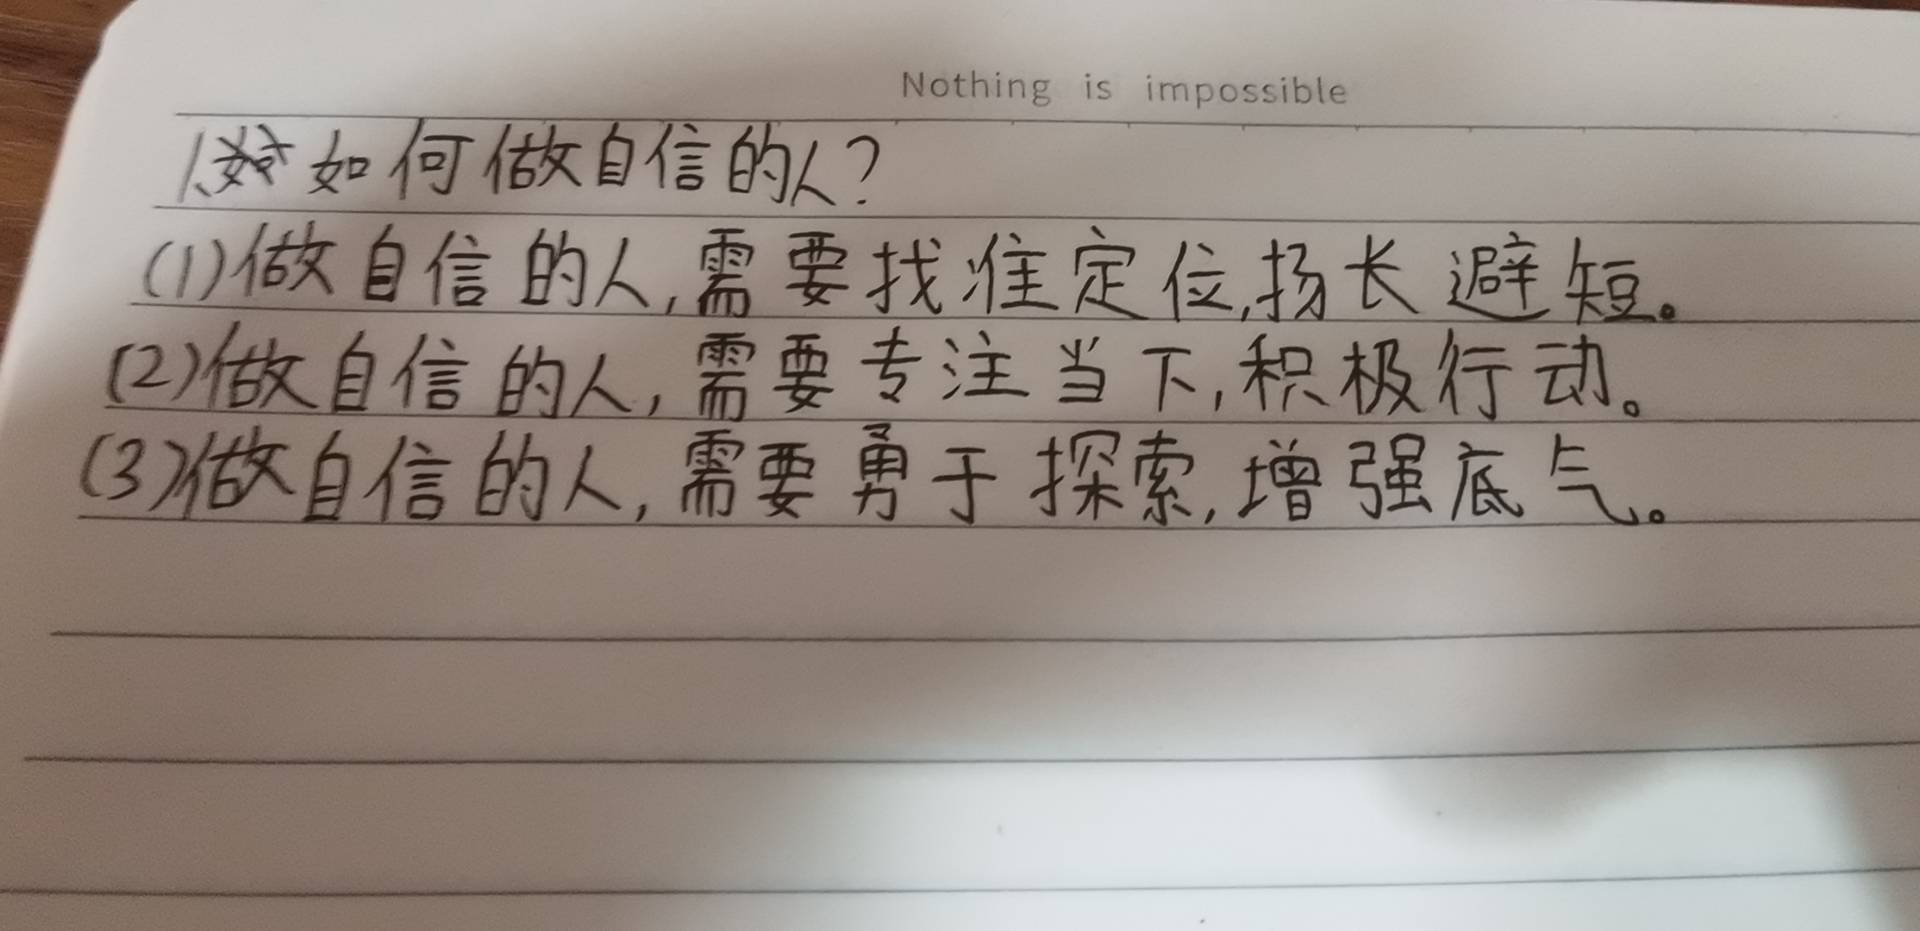 Nothing is impossible
1.如何做自信的人?
(1)做自信的人,需要找准定位,扬长避短。
(2)做自信的人,需要专注当下,积极行动。
(3)做自信的人,需要勇于探索,增强底气。